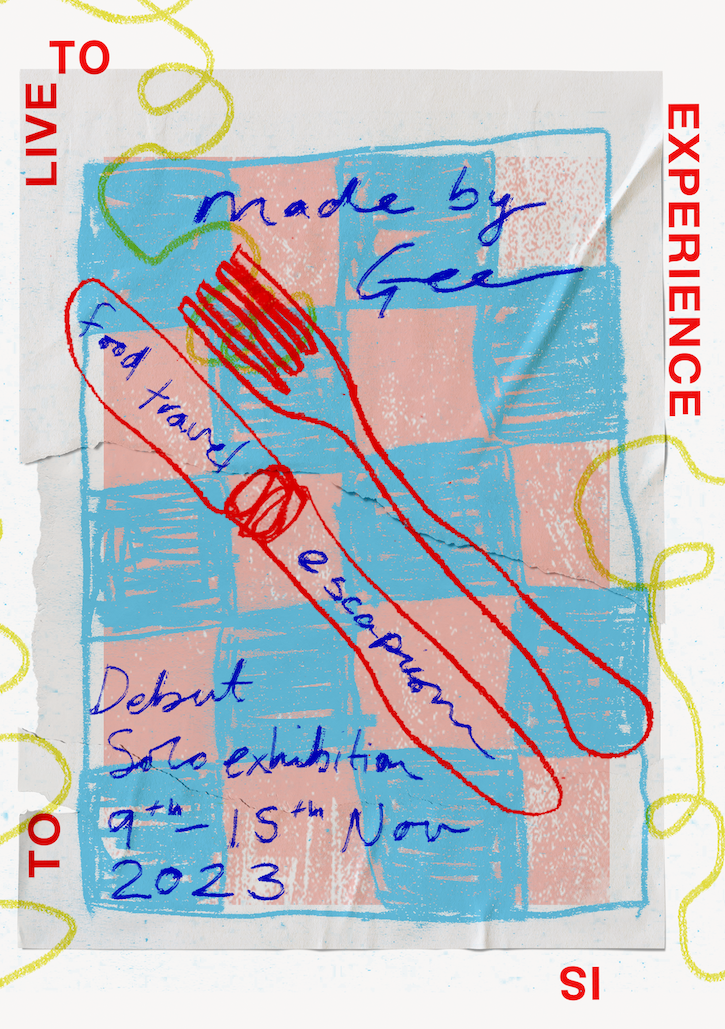 TO
EXPERIENCE
IS
TO
LIVE
made by
Gee
food travel
escapism
Debut
Solo exhibition
9th - 15th Nov
2023